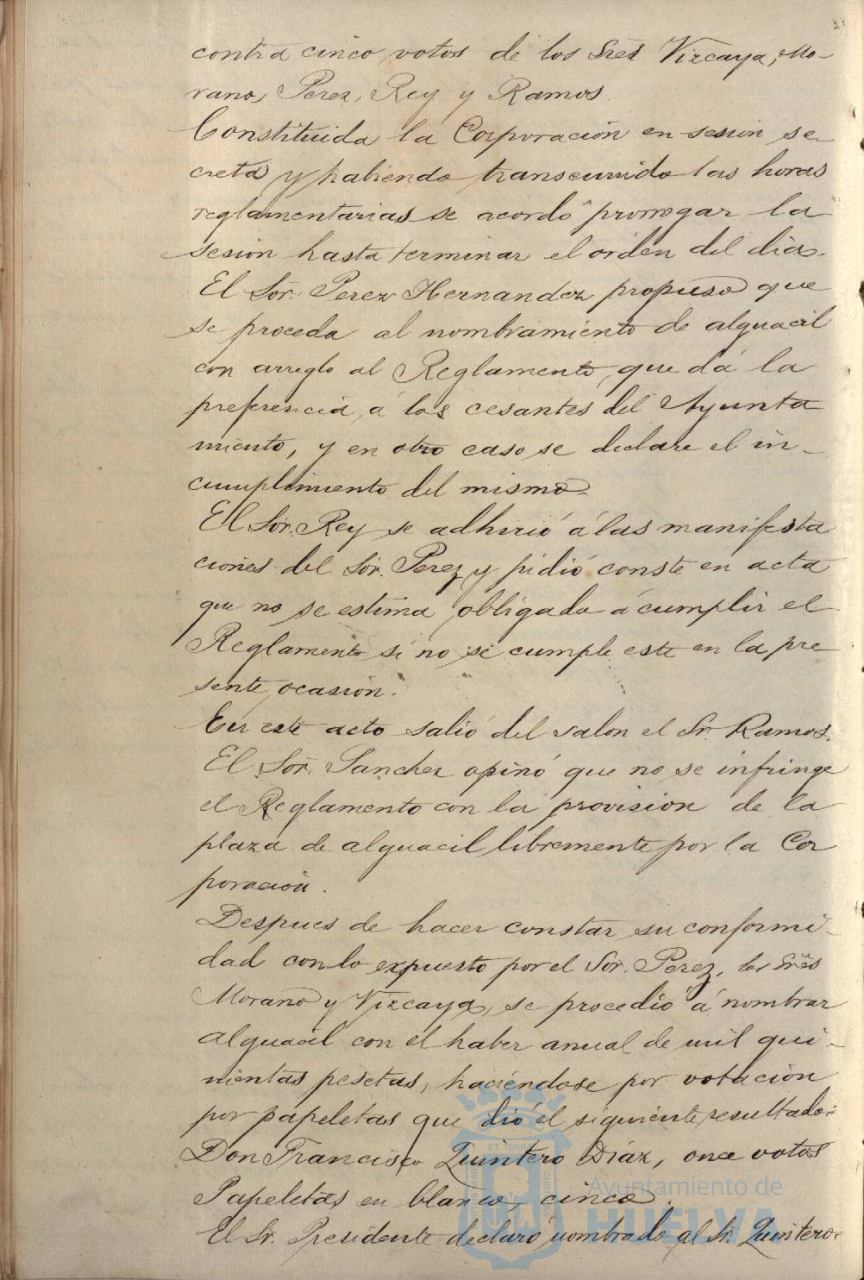 contra cinco votos de los Sres Vizcaya, Mo-
rano, Perez, Rey y Ramos.
Constituida la Corporación en sesion se-
creta y habiendo transcurrido las horas
reglamentarias se acordó prorrogar la
sesion hasta terminar el orden del dia.
El Sor. Perez Hernandez propuso que
se proceda al nombramiento de alguacil
con arreglo al Reglamento, que dá la
preferencia, á los cesantes del Ayunta
miento, y en otro caso se declare el in-
cumplimiento del mismo.
El Sor. Rey se adhirió á las manifesta
ciones del Sor. Perez y pidió conste en acta
que no se estima obligado á cumplir el
Reglamento si no se cumple este en la pre
sente ocasion.
En este acto salió del salon el Sr. Ramos.
El Sor. Sanchez opinó que no se infringe
el Reglamento con la provision de la
plaza de alguacil libremente por la Cor
poracion.
Despues de hacer constar su conformi-
dad con lo expuesto por el Sor. Perez, los Sres
Morano y Vizcaya, se procedió á nombrar
alguacil con el haber anual de mil qui-
nientas pesetas, haciéndose por votación
por papeletas que dió el siguiente resultado:
Don Francisco Quintero Diáz, once votos
Papeletas en blanco, cinco.
El Sr. Presidente declaró nombrado al Sr. Quintero
Ayuntamiento de
HUELVA